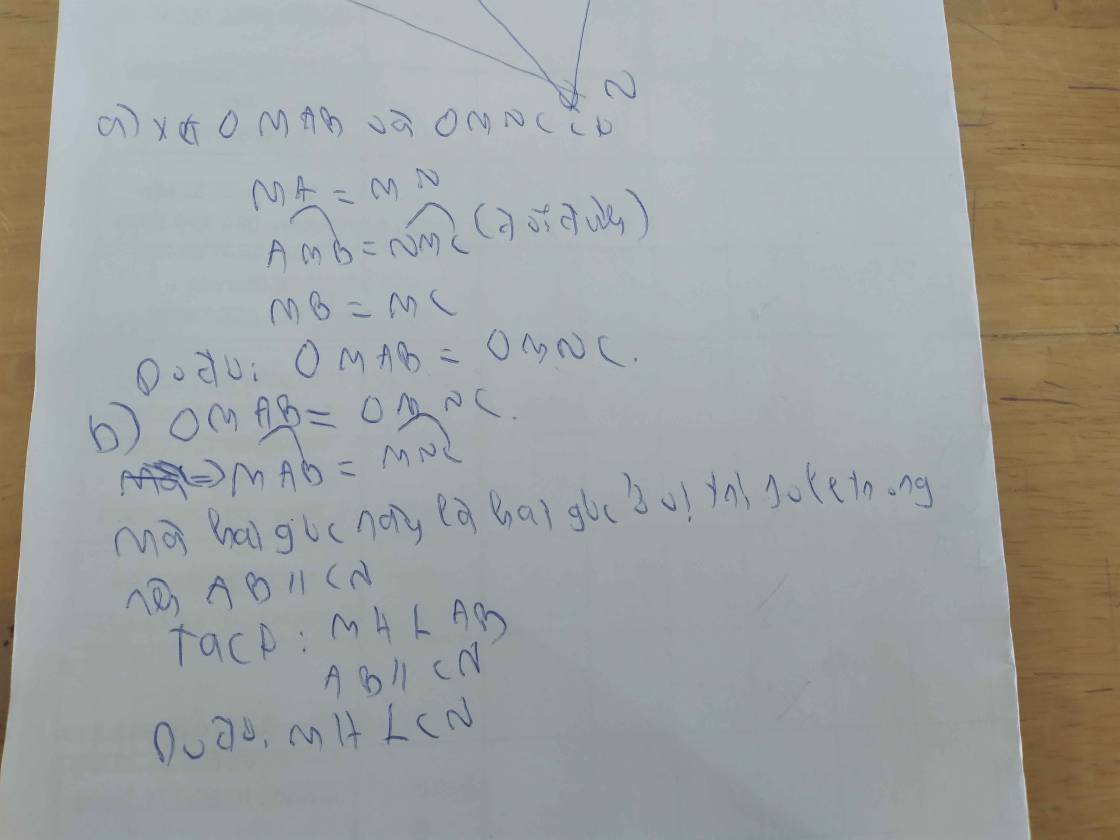 N
a) xét Δ MAB và Δ MNC có
MA = MN
AMB = NMC (đối đỉnh)
MB = MC
Do đó: Δ MAB = Δ MNC.
b) Δ MAB = Δ MNC.
=> MAB = MNC
mà hai góc này là hai góc ở vị trí so le trong
nên AB // CN
Ta có: MH ⊥ AB
AB // CN
Do đó: MH ⊥ CN